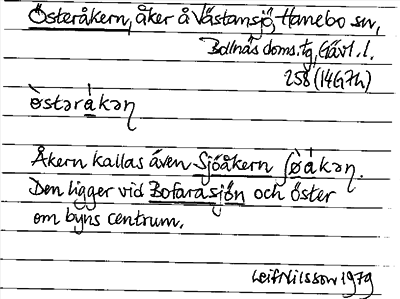 Österåkern, åker å Västansjö, Hanebo sn,
Bollnäs doms.tg, Gävl. l.
258 (14G7h)
ö̀stəråkəɳ
Åkern kallas även Sjöåkern ʃøåkəɳ.
Den ligger vid Bofarasjön och öster
om byns centrum.
Leif Nilsson 1979